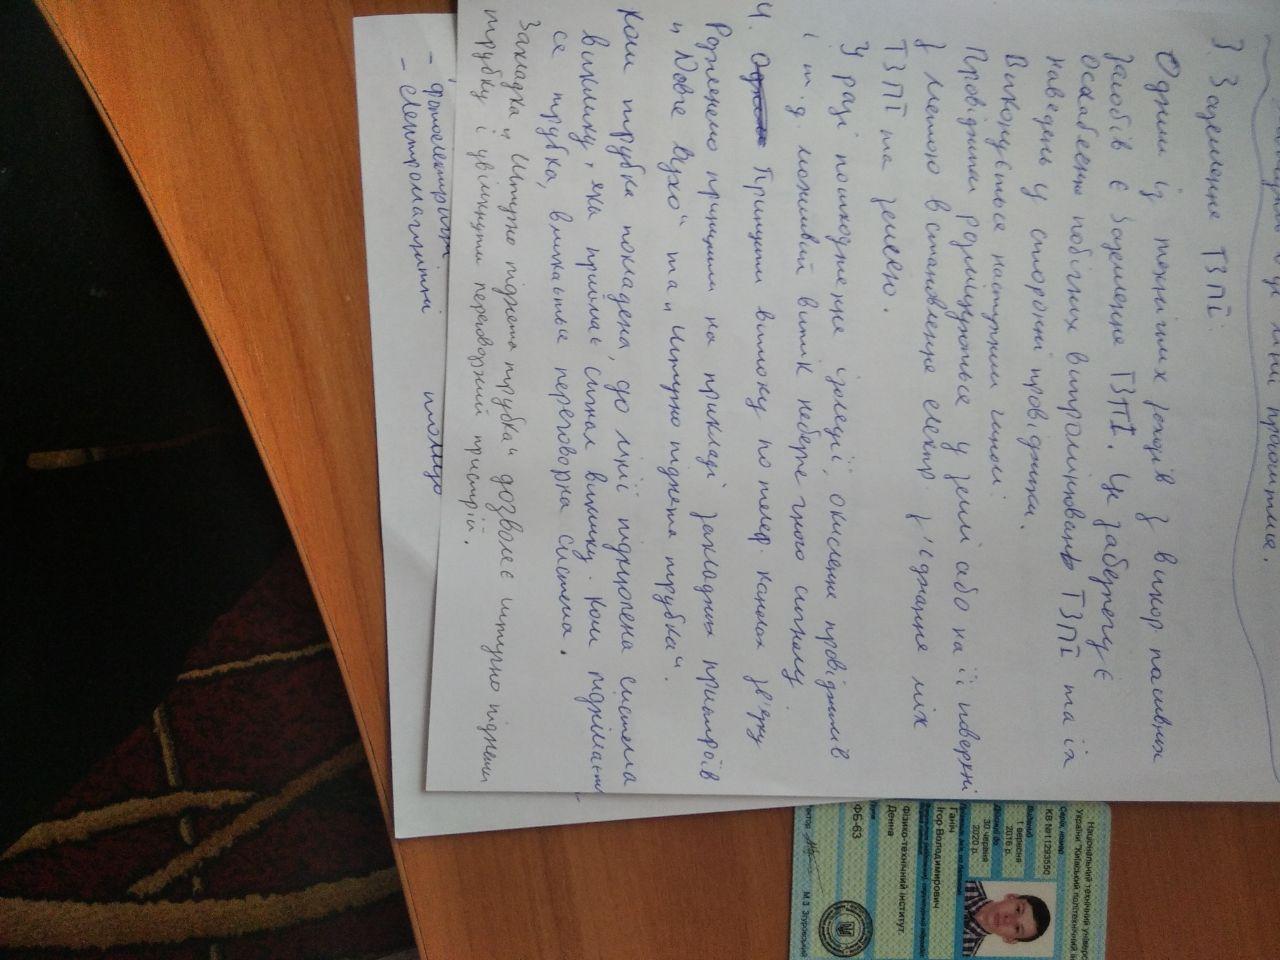 3. Заземлення ТЗПІ
Одним із технічних заходів з викор. пасивних
засобів є заземлення ТЗПІ. Це забезпечує
ослаблення побічних випромінювань ТЗПІ та їх
наведень у сторонні провідники.
Виконується наступним чином:
Провідники розміщуються у землі або на її поверхні
з метою встановлення електр. з'єднання між
ТЗПІ та землею.
У разі пошкодження ізоляції, окислення провідників
і т.д. можливий витік небезпечного сигналу
4. Принципи витоку по телеф. каналах зв'язку
Розглянемо принципи на прикладі закладних пристроїв
„Довге вухо" та „Штучно піднята трубка".
Коли трубка покладена, до лінії підключена система
виклику, яка приймає сигнал виклику. Коли піднімаєть
ся трубка, вмикається переговорна система.
Закладка „Штучно піднята трубка" дозволяє штучно підняти
трубку і увімкнути переговорний пристрій.
- фотоелектричні
- електромагнітні тощо
Національний технічний універс
України "Київський політехнічний ін
Серія, номер
КВ №11293550
Виданий
1 вересня
2016 р.
Дійсний до
30 червня
2020 р.
Ганіч
Ігор Володимирович
Фізико-технічний інститут
Денна
ФБ-63
М.З. Згуровський